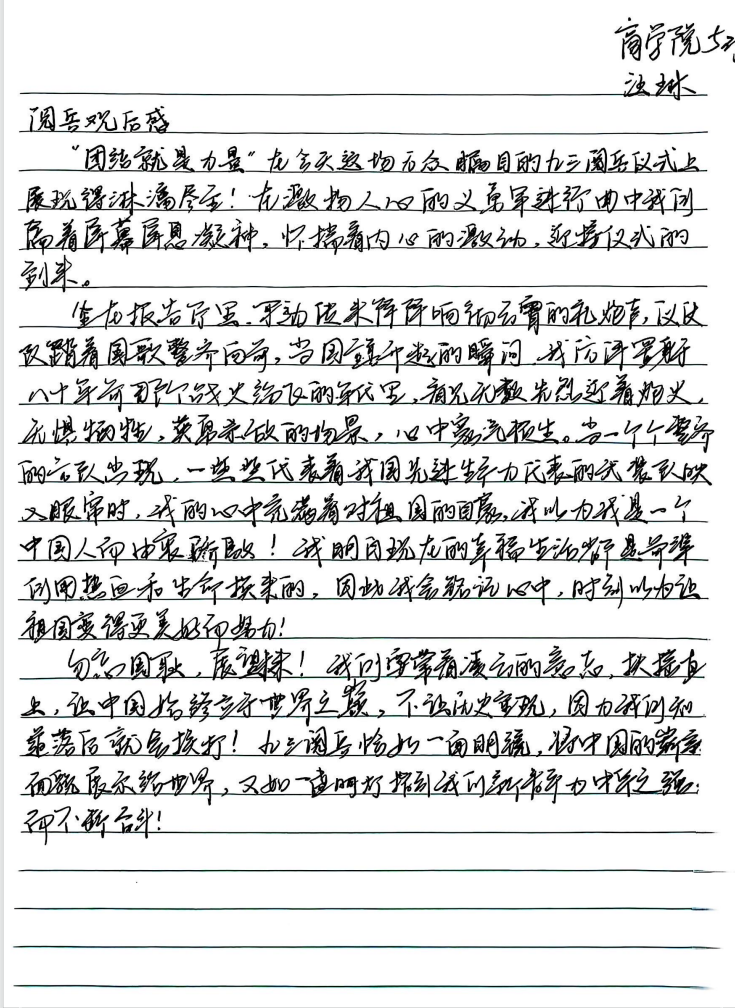 商学院
汪琳
阅兵观后感
"团结就是力量"在今天这场万众瞩目的九三阅兵仪式上
展现得淋漓尽至!在激扬人心的义勇军进行曲中我们
隔着屏幕屏息凝神,怀揣着内心的激动,迎接仪式的
到来。
坐在报告厅里,耳边传来阵阵响彻云霄的礼炮声,仪仗
队踏着国歌整齐向前,当国旗升起的瞬间,我仿佛置身于
八十年前那个战火纷飞的年代里,看见无数先烈迎着炮火,
无惧牺牲,英勇杀敌的场景,心中热流横生。当一个个整齐
的方队出现,一些些代表着我国先进生产力代表的武装队映
入眼帘时,我的心中充满着对祖国的自豪,我以为我是一个
中国人而由衷骄傲!我明白现在的幸福生活都是前辈
们用热血和生命换来的,因此我会铭记心中,时刻以为让
祖国变得更美好而努力!
勿忘国耻,展望未来!我们要带着凌云的意志,扶摇直
上,让中国始终立于世界之巅,不让历史重现,因为我们知
道落后就会挨打!九三阅兵恰如一面明镜,将中国的崭新
面貌展示给世界,又如一盏明灯指引我们新青年为中华之强
而不断奋斗!